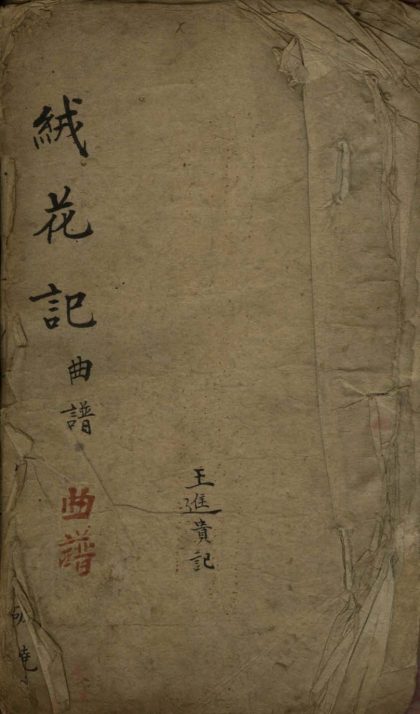 絨花記曲譜
曲譜
王進貴記